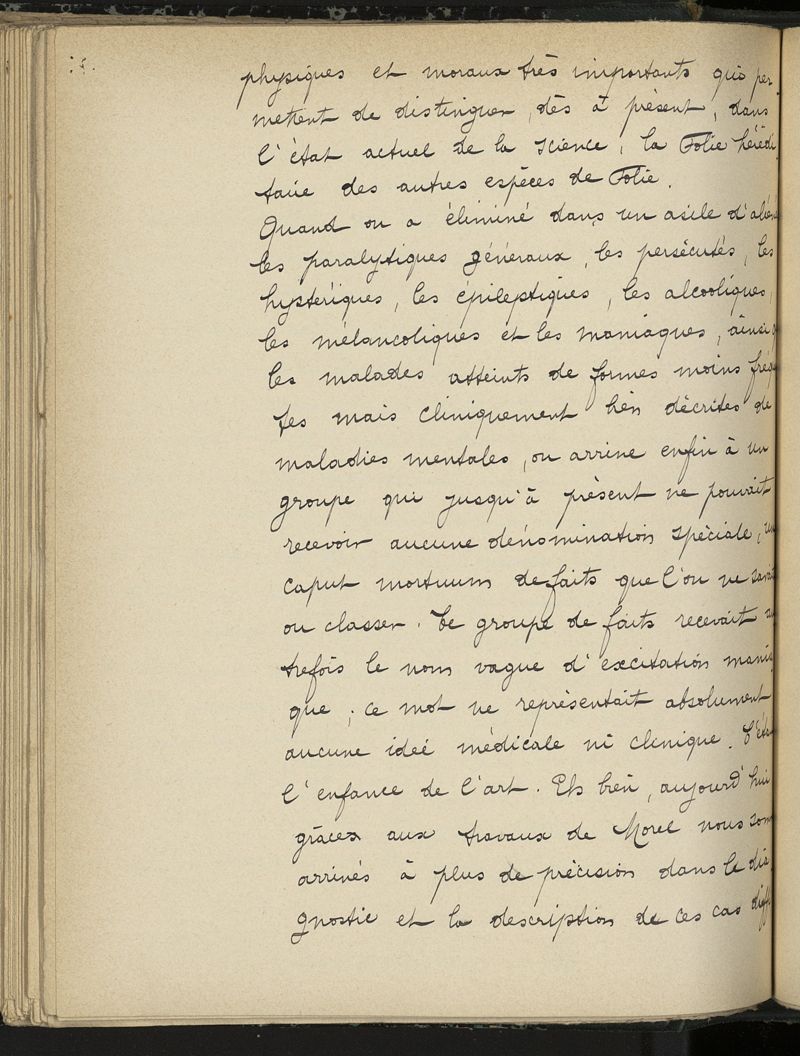 physiques et moraux très importants qui per
mettent de distinguer, dès à présent, dans
l'état actuel de la science, la Folie hérédi
taire des autres espèces de Folie.
Quand on a éliminé dans un asile d'alién
les paralytiques généraux, les persécutés, les
hystériques, les épileptiques, les alcooliques,
les mélancoliques et les maniaques, ainsi q
les malades atteints de formes moins fréq
tes mais cliniquement bien décrites de
maladies mentales, on arrive enfin à un
groupe qui jusqu'à présent ne pouvait
recevoir aucune dénomination spéciale, un
caput mortuum de faits que l'on ne savait
ou classer. Ce groupe de faits recevait au
trefois le nom vague d'excitation mania
que ; ce mot ne représentait absolument
aucune idée médicale ni clinique. C'éta
l'enfance de l'art. Eh bien, aujourd'hui
grâces aux travaux de Morel nous som
arrivés à plus de précision dans le dia
gnostic et la description de ces cas diffi